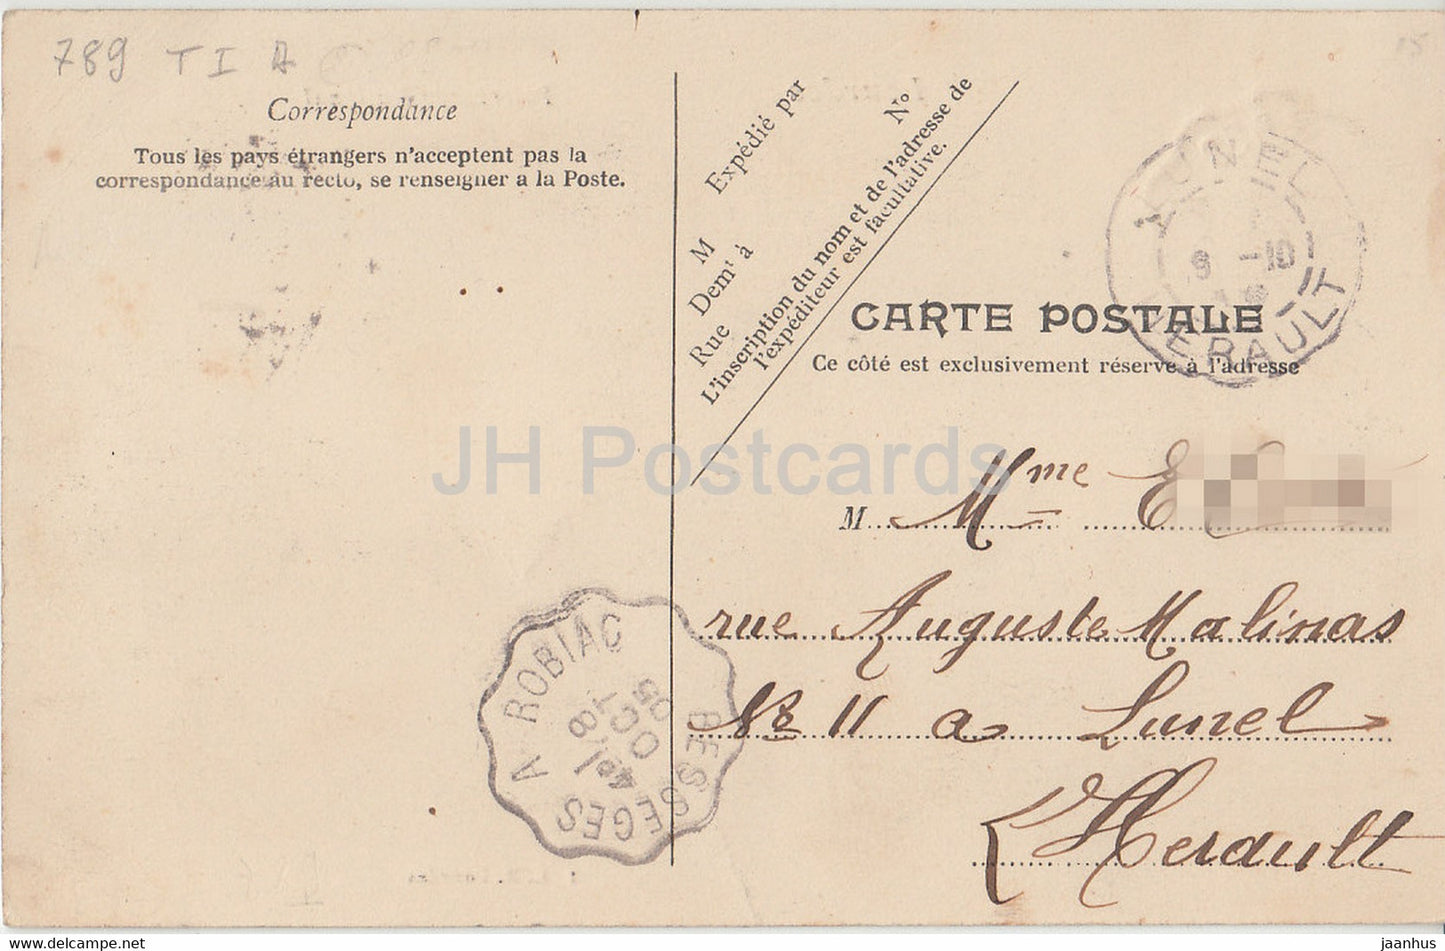 789 T I A
Correspondance
Tous les pays étrangers n'acceptent pas la
correspondance au recto, se renseigner a la Poste.
Expédié par
M
Demt à
Rue
N°
L'inscription du nom et de l'adresse de
l'expéditeur est facultative.
LUNEL
9 -10
HERAULT
CARTE POSTALE
Ce côté est exclusivement réservé à l'adresse
JH Postcards
M Mme E
rue Auguste Malinas
No 11 a Lunel
L'Herault
BESSEGES A ROBIAC
18
OCT
05
www.delcampe.net
jaanhus